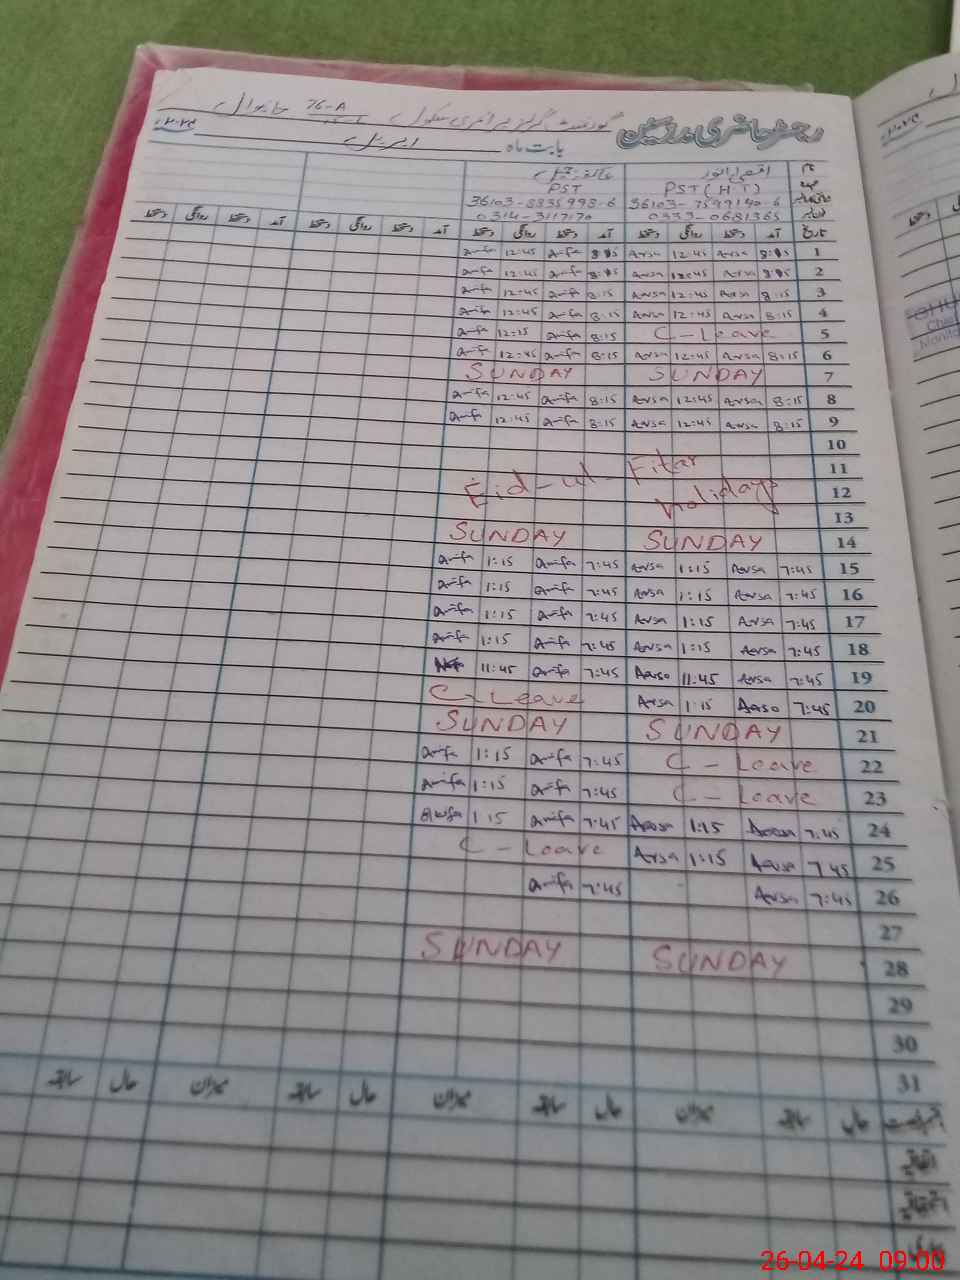 رجسٹر حاضری مدرسین گورنمنٹ گرلز پرائمری سکول 76-A
بابت ماہ اپریل ۲۰۲۴ء
نام اقصیٰ انور عارفہ
عہدہ PST (H T) PST
36103-7599140-6 36103-8335998-6
0333-0681365 0314-3117170
تاریخ آمد دستخط روانگی دستخط آمد دستخط روانگی دستخط آمد دستخط روانگی دستخط آمد دستخط روانگی دستخط
arifa 12:45 arifa 8:15 Arsa 12:45 Arsa 8:15 1
arifa 12:45 arifa 8:15 Arsa 12:45 Arsa 8:15 2
arifa 12:45 arifa 8:15 Arsa 12:45 Arsa 8:15 3
arifa 12:45 arifa 8:15 Arsa 12:45 Arsa 8:15 4
arifa 12:15 arifa 8:15 C-Leave 5
arifa 12:45 arifa 8:15 Arsa 12:45 Arsa 8:15 6
SUNDAY SUNDAY 7
arifa 12:45 arifa 8:15 Arsa 12:45 Arsa 8:15 8
arifa 12:45 arifa 8:15 Arsa 12:45 Arsa 8:15 9
10
Eid-ul-Fitar 11
holidays 12
13
SUNDAY SUNDAY 14
arifa 1:15 arifa 7:45 Arsa 1:15 Arsa 7:45 15
arifa 1:15 arifa 7:45 Arsa 1:15 Arsa 7:45 16
arifa 1:15 arifa 7:45 Arsa 1:15 Arsa 7:45 17
arifa 1:15 arifa 7:45 Arsa 1:15 Arsa 7:45 18
11:45 arifa 7:45 Arsa 11:45 Arsa 7:45 19
C-Leave Arsa 1:15 Arsa 7:45 20
SUNDAY SUNDAY 21
arifa 1:15 arifa 7:45 C-Leave 22
arifa 1:15 arifa 7:45 C-Leave 23
arifa 1:15 arifa 7:45 Arsa 1:15 Arsa 7:45 24
C-Leave Arsa 1:15 Arsa 7:45 25
arifa 7:45 Arsa 7:45 26
27
SUNDAY SUNDAY 28
29
30
31
حال سابقہ میزان حال سابقہ میزان حال سابقہ میزان حال سابقہ
اتفاقیہ
26-04-24 09:00